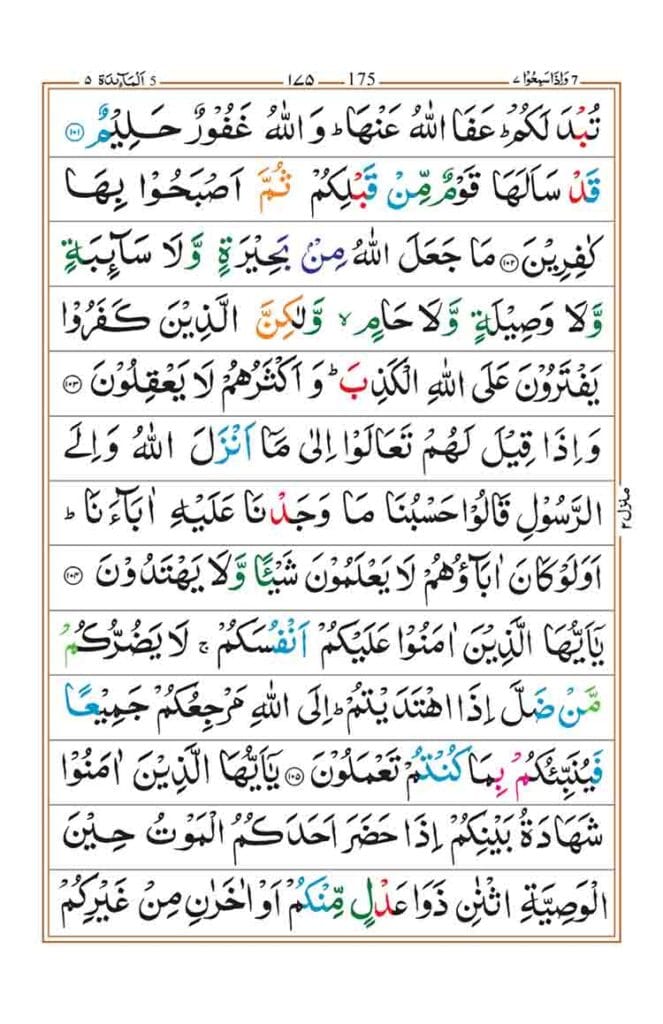 وَاِذَا سَمِعُوْا ٧ 7 175 ١٧٥ 5 اَلْمَآئِدَة ٥
تُبْدَ لَكُمْ ؕ عَفَا اللّٰهُ عَنْهَا ؕ وَ اللّٰهُ غَفُوْرٌ حَلِيْمٌ ۝۱۰۱
قَدْ سَاَلَهَا قَوْمٌ مِّنْ قَبْلِكُمْ ثُمَّ اَصْبَحُوْا بِهَا
كٰفِرِيْنَ ۝۱۰۲ مَا جَعَلَ اللّٰهُ مِنْۢ بَحِيْرَةٍ وَّلَا سَآئِبَةٍ
وَّلَا وَصِيْلَةٍ وَّلَا حَامٍ ۙ وَّلٰكِنَّ الَّذِيْنَ كَفَرُوْا
يَفْتَرُوْنَ عَلَى اللّٰهِ الْكَذِبَ ؕ وَ اَكْثَرُهُمْ لَا يَعْقِلُوْنَ ۝۱۰۳
وَ اِذَا قِيْلَ لَهُمْ تَعَالَوْا اِلٰى مَاۤ اَنْزَلَ اللّٰهُ وَ اِلَى
الرَّسُوْلِ قَالُوْا حَسْبُنَا مَا وَجَدْنَا عَلَيْهِ اٰبَآءَنَا ؕ
اَوَلَوْ كَانَ اٰبَآؤُهُمْ لَا يَعْلَمُوْنَ شَيْـًٔا وَّلَا يَهْتَدُوْنَ ۝۱۰۴
يٰۤاَيُّهَا الَّذِيْنَ اٰمَنُوْا عَلَيْكُمْ اَنْفُسَكُمْ ۚ لَا يَضُرُّكُمْ
مَّنْ ضَلَّ اِذَا اهْتَدَيْتُمْ ؕ اِلَى اللّٰهِ مَرْجِعُكُمْ جَمِيْعًا
فَيُنَبِّئُكُمْ بِمَا كُنْتُمْ تَعْمَلُوْنَ ۝۱۰۵ يٰۤاَيُّهَا الَّذِيْنَ اٰمَنُوْا
شَهَادَةُ بَيْنِكُمْ اِذَا حَضَرَ اَحَدَكُمُ الْمَوْتُ حِيْنَ
الْوَصِيَّةِ اثْنٰنِ ذَوَا عَدْلٍ مِّنْكُمْ اَوْ اٰخَرٰنِ مِنْ غَيْرِكُمْ
منزل ۲